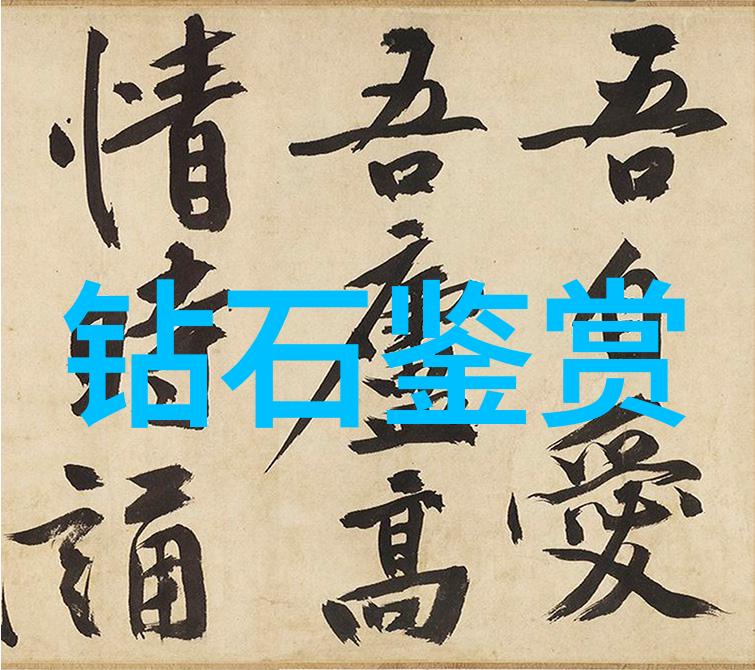 吾自愛
吾廬高
情誦
钻石鉴赏